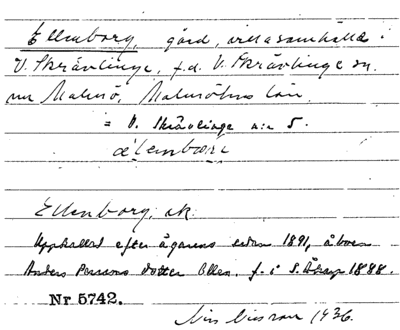 Ellenborg, gård, villasamhälle i
V. Skrävlinge, f.d. V. Skrävlinge sn.
nu Malmö, Malmöhus län.
= V. Skrävlinge n:r 5.
Ellenborg, ek.
Uppkallad efter ägarens sedan 1891, åboen
Anders Perssons dotter Ellen, f. i S. 1888.
Nr 5742.
Nils Nilsson 1936.